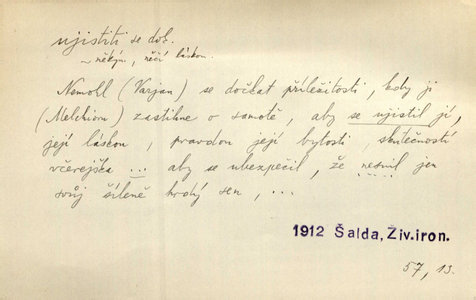 ujistiti se dok.
~ někým, něčí láskou.
Nemohl (Varjan) se dočkat příležitosti, kdy ji
(Melchioru) zastihne o samotě, aby se ujistil jí,
její láskou, pravdou její bytosti, skutečností
včerejška ... aby se ubezpečil, že nesnil jen
svůj šíleně hrdý sen, ...
1912 Šalda, Živ.iron.
57, 13.